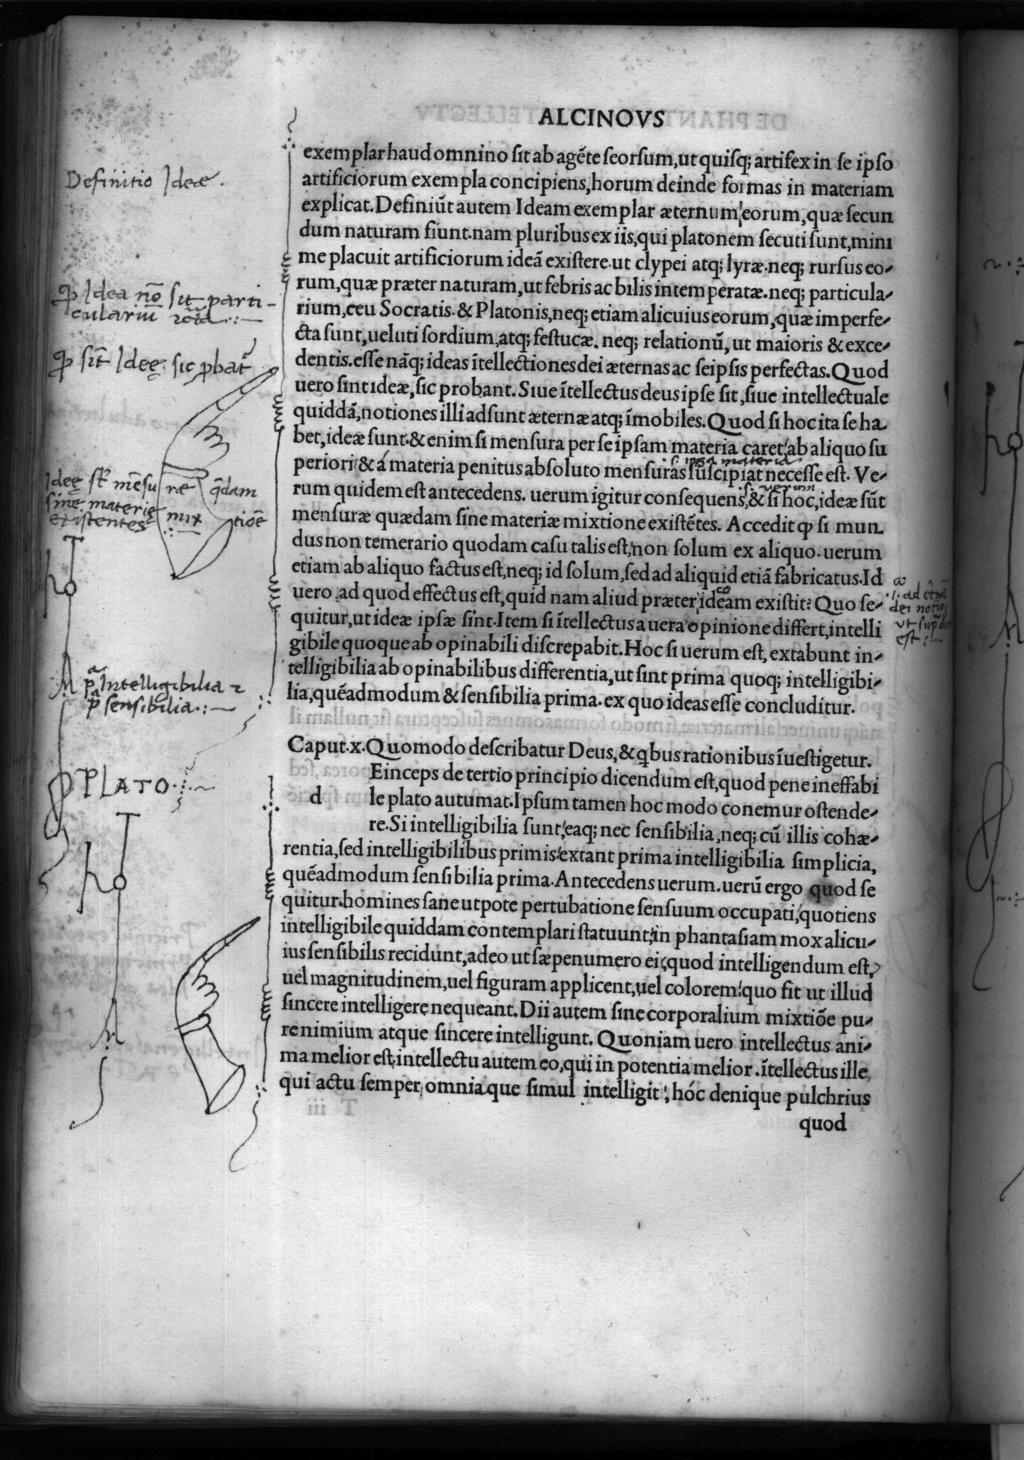 ALCINOVS
exemplar haud omnino sit ab agēte seorsum, ut quisq; artifex in se ipso
artificiorum exempla concipiens, horum deinde formas in materiam
explicat. Definiūt autem Ideam exemplar æternum eorum, quæ secun
dum naturam fiunt. nam pluribus ex iis, qui platonem secuti sunt, mini
me placuit artificiorum ideā existere. ut clypei atq; lyræ. neq; rursus eo-
rum, quæ præter naturam, ut febris ac bilis intemperatæ. neq; particula-
rium, ceu Socratis & Platonis, neq; etiam alicuius eorum, quæ imperfe-
cta sunt, ueluti sordium, atq; festucæ. neq; relationū, ut maioris & exce-
dentis. esse nāq; ideas ītellectiones dei æternas ac seipsis perfectas. Quod
uero sint ideæ, sic probant. Siue ītellectus deus ipse sit, siue intellectuale
quiddā, notiones illi adsunt æternæ atq; īmobiles. Quod si hoc ita se ha
bet, ideæ sunt. & enim si mensura per se ipsam materia caret, ab aliquo su
periori: & á materia penitus absoluto mensuras suscipiat necesse est. Ve-
rum quidem est antecedens. uerum igitur consequens, & si hoc, ideæ sūt
mensuræ quædam sine materiæ mixtione existētes. Accedit ꝙ si mun
dus non temerario quodam casu talis est, non solum ex aliquo. uerum
etiam ab aliquo factus est, neq; id solum, sed ad aliquid etiā fabricatus. Id
uero ad quod effectus est, quid nam aliud præter ideam existit? Quo se-
quitur, ut ideæ ipsæ sint. Item si ītellectus a uera opinione differt, intelli
gibile quoque ab opinabili discrepabit. Hoc si uerum est, extabunt in-
telligibilia ab opinabilibus differentia, ut sint prima quoq; intelligibi-
lia, quēadmodum & sensibilia prima. ex quo ideas esse concluditur.
Caput. x. Quomodo describatur Deus, & qbus rationibus īuestigetur.
Einceps de tertio principio dicendum est, quod pene ineffabi
d le plato autumat. Ipsum tamen hoc modo conemur ostende-
re. Si intelligibilia sunt, eaq; nec sensibilia, neq; cū illis cohæ-
rentia, sed intelligibilibus primis extant prima intelligibilia simplicia,
quēadmodum sensibilia prima. Antecedens uerum. uerū ergo quod se
quitur. homines sane utpote pertubatione sensuum occupati, quotiens
intelligibile quiddam contemplari statuunt, in phantasiam mox alicu-
ius sensibilis recidunt, adeo ut sæpenumero ei, quod intelligendum est,
uel magnitudinem, uel figuram applicent, uel colorem: quo fit ut illud
sincere intelligere nequeant. Dii autem sine corporalium mixtiōe pu-
re nimium atque sincere intelligunt. Quoniam uero intellectus ani-
ma melior est, intellectu autem eo, qui in potentia melior. ītellectus ille,
qui actu semper, omnia que simul intelligit, hóc denique pulchrius
quod
Definitio Ideæ.
ꝙ Idea nō sit parti-
culariū
ꝙ sīt Ideę: sic ꝓbat
Ideę st̄ mēsu ræ q̄dam
sine materię mix tiōe
existentes
si ipsa materia
si verum
co
pᵃ Intelligibilia &
pᵃ sensibilia
PLATO